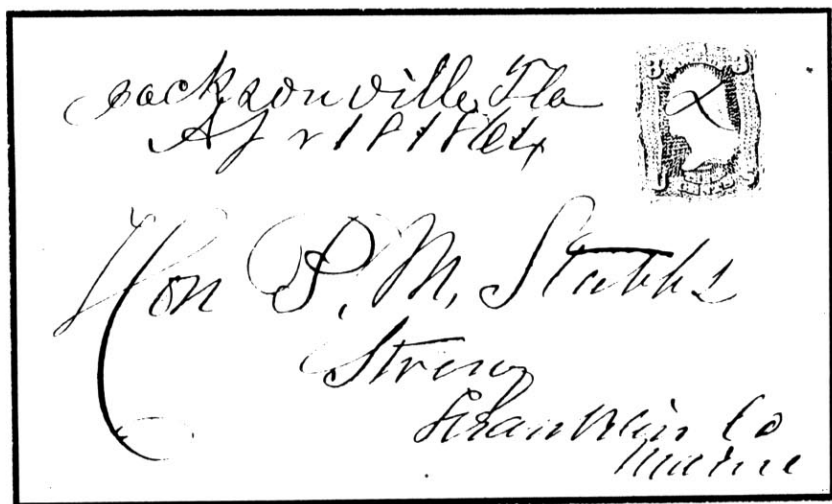 Jacksonville Fla
Apr 18 1864
Hon P. M. Stubbs
Strong
Franklin Co
Maine
3 3